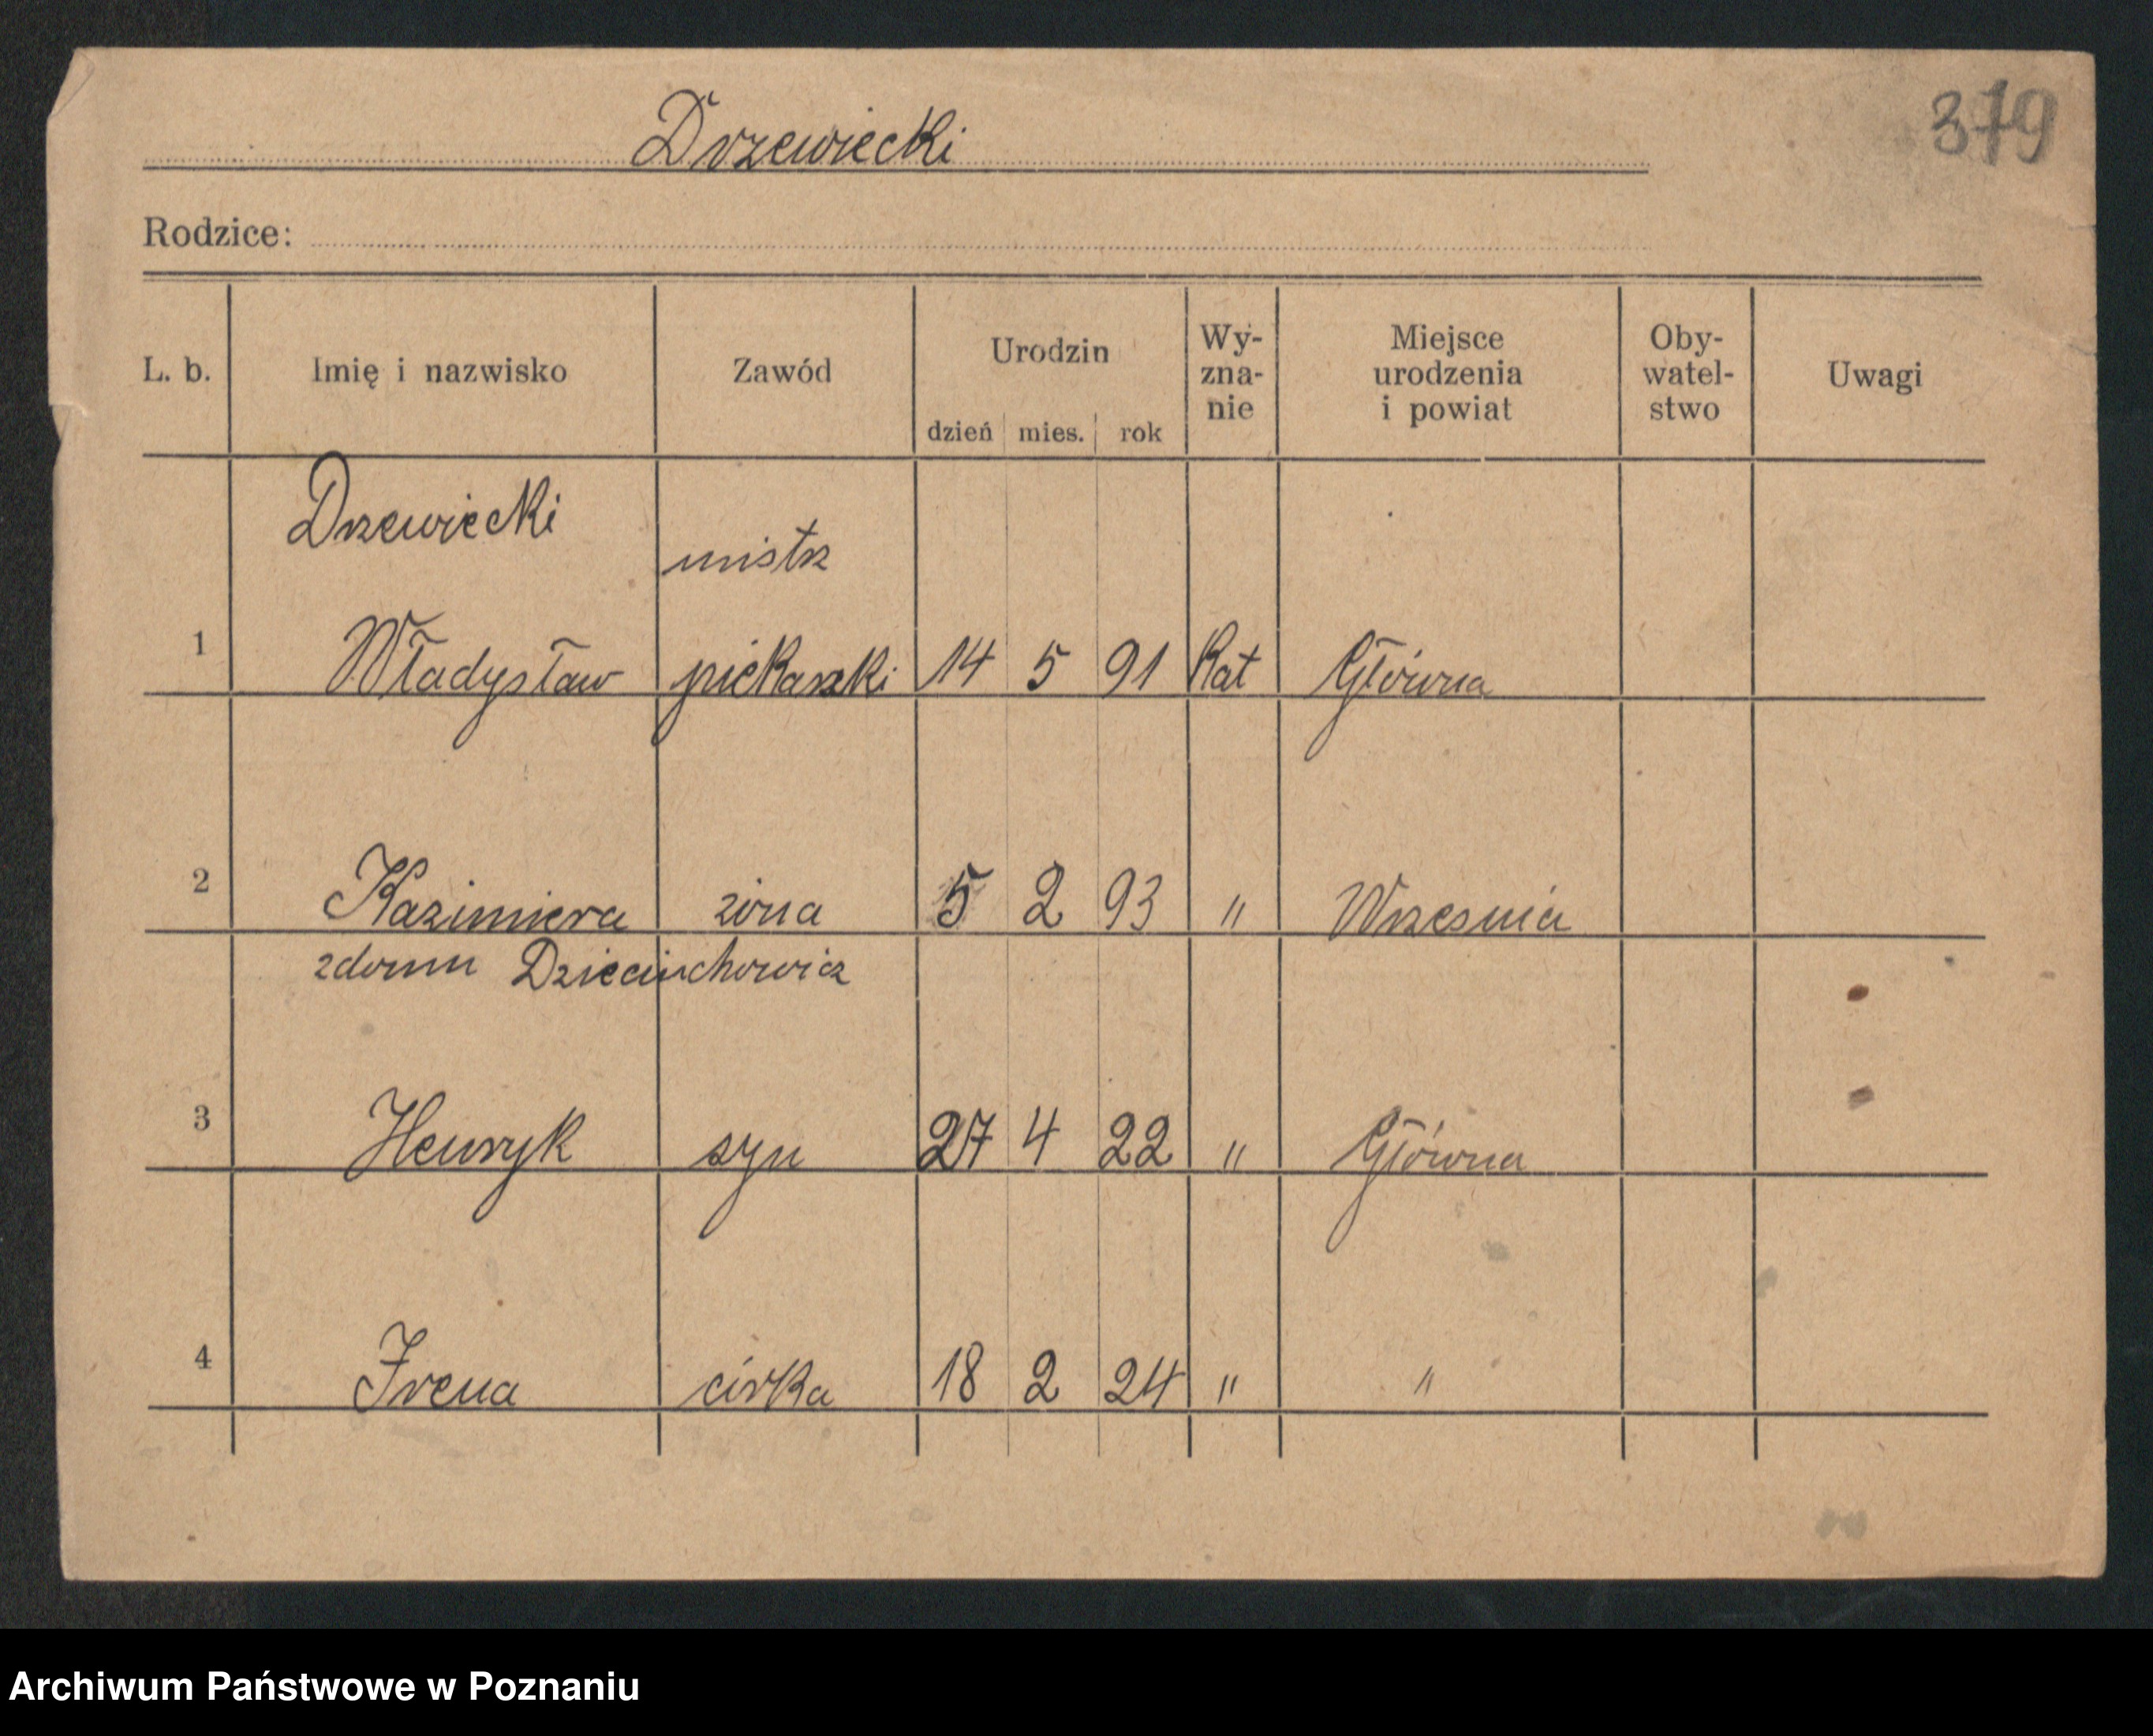 Drzewiecki
Rodzice:
L. b. Imię i nazwisko Zawód Urodzin dzień mies. rok Wy-zna-nie Miejsce urodzenia i powiat Oby-watel-stwo Uwagi
Drzewiecki mistrz
1 Władysław piekarski 14 5 91 Kat Główna
2 Kazimiera żona 5 2 93 " Wrzesnia
zdomu Dzieciuchowicz
3 Henryk syn 27 4 22 " Główna
4 Irena córka 18 2 24 " "
Archiwum Państwowe w Poznaniu